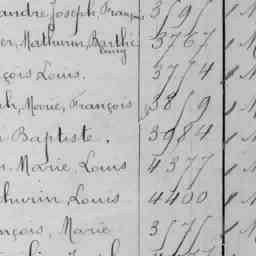 andre Joseph, François 3595
er, Mathurin, Barthé 3767
lemy
çois Louis. 3774
h, Marie, François 3859
Baptiste. 3984
Marie, Louis 4377
thurin, Louis 4400
nçois, Marie 3575